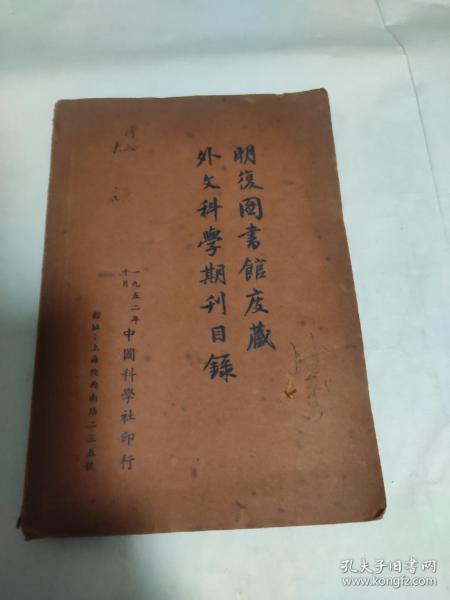 明復圖書館庋藏
外文科學期刊目錄
一九五二年
十月
中國科學社印行
館址：上海陝西南路二三五號
孔夫子旧书网
www.kongfz.com